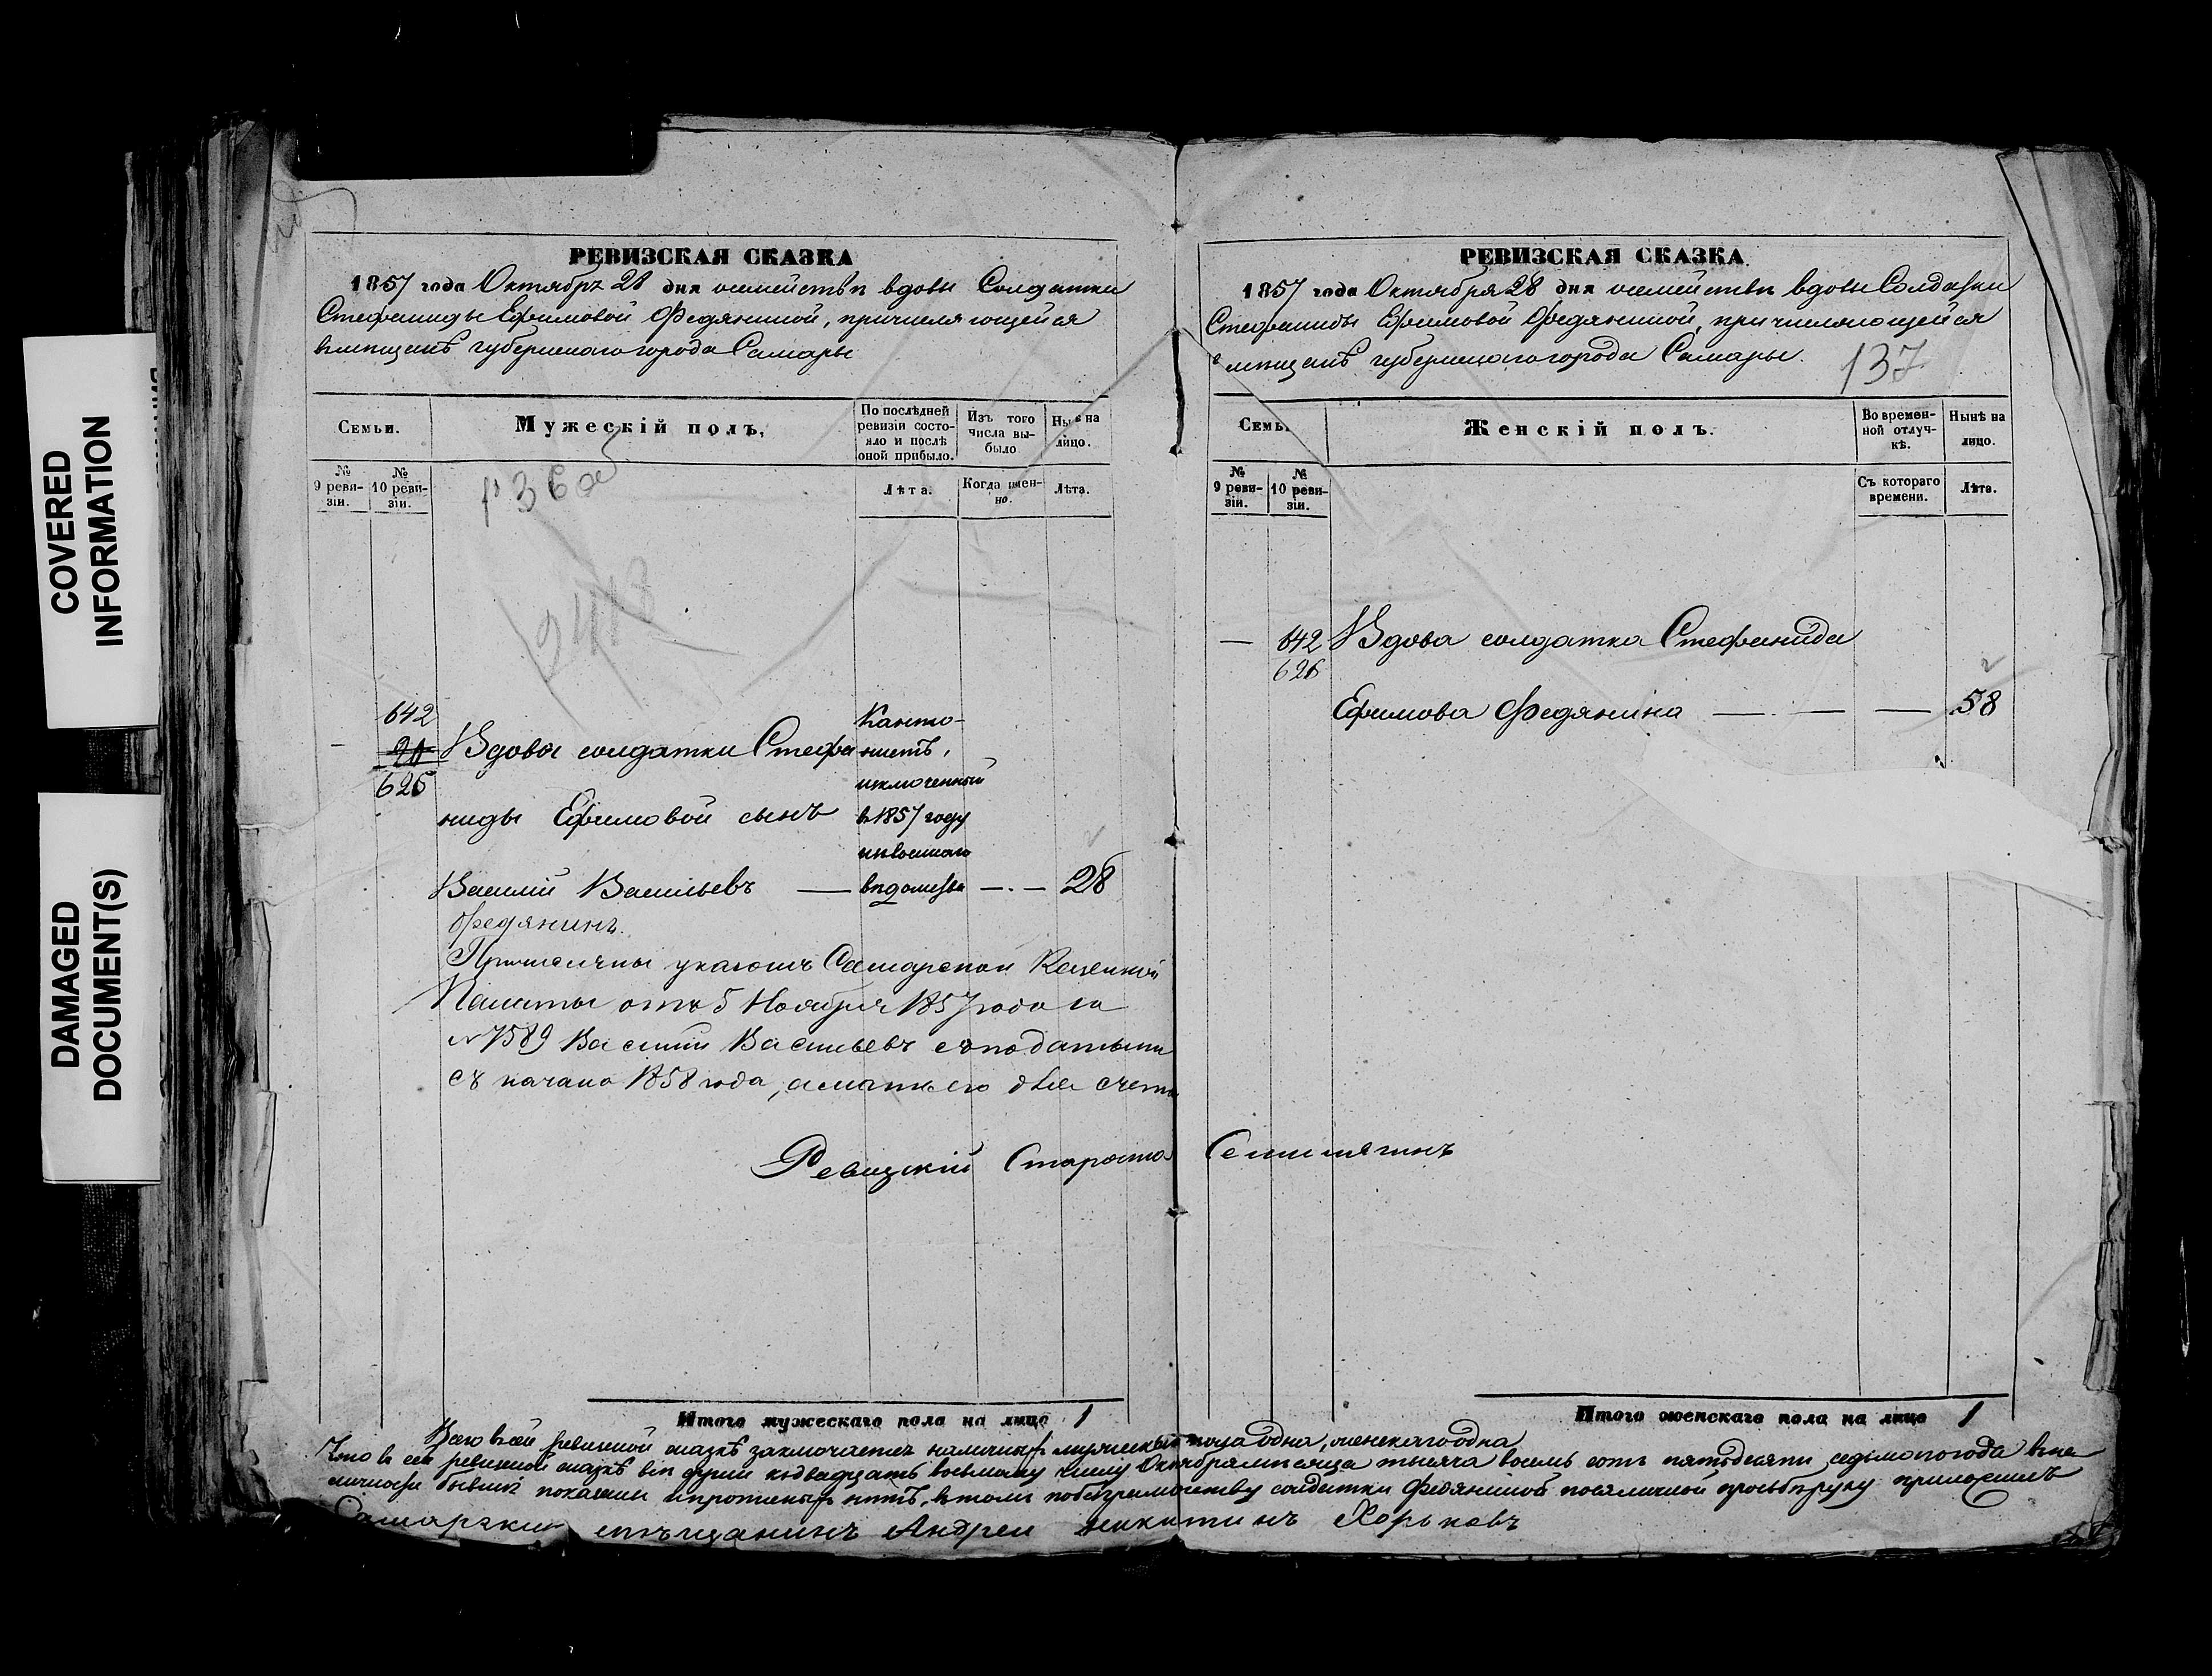 COVERED
INFORMATION
DAMAGED
DOCUMENT(S)
РЕВИЗСКАЯ СКАЗКА
1857 года Октябрѣ 28 дня о семействѣ вдовы Солдатки
Стефаниды Ефимовой Федяниной, причисляющейся
въ мѣщанѣ губернскаго города Самары
Семьи.
Мужескій полъ,
По послѣдней
ревизіи состо-
яло и послѣ
оной прибыло.
Изъ того
числа вы-
было
Нынѣ на
лицо.
№
9 реви-
зіи.
№
10 реви-
зіи.
Лѣта.
Когда имен-
но.
Лѣта.
136 об
2413
642
20
625
Вдовы солдатки Стефа
ниды Ефимовой сынъ
Василій Васильевъ
Федянинъ.
Канто-
нистъ,
исключенный
в 1857 году
изъ военнаго
вѣдомства
28
Причислены указомъ Самарской Казенной
Палаты отъ 5 Ноября 1857 года за
№ 7589 Василій Васильевъ съ податьми
съ начала 1858 года, а мать его для счета
Ревизскій Староста
Итого мужескаго пола на лицо 1
РЕВИЗСКАЯ СКАЗКА
1857 года Октября 28 дня о семействѣ вдовы Солдатки
Стефаниды Ефимовой Федяниной, причисляющейся
в мѣщанѣ губернскаго города Самары.
137
Семьи
Женскій полъ.
Во времен-
ной отлуч-
кѣ.
Нынѣ на
лицо.
№
9 реви-
зіи.
№
10 реви-
зіи.
Съ котораго
времени.
Лѣта.
642
625
Вдова солдатка Стефанида
Ефимова Федянина
58
Итого женскаго пола на лицо 1
Всего в сей ревизской сказкѣ заключается наличныхъ мужескаго пола одна, женскаго одна
Что в сей ревизской сказкѣ всѣ души къ двадцать восьмому числу Октября мѣсяца тысяча восемь сотъ пятьдесять седьмого года в на
личности бывшіе показаны и прописныхъ нѣтъ, в томъ по безграмотству солдатки Федяниной по ея личной просьбѣ руку приложилъ
Самарскій мѣщанинъ Андрей Никитинъ Хорьковъ